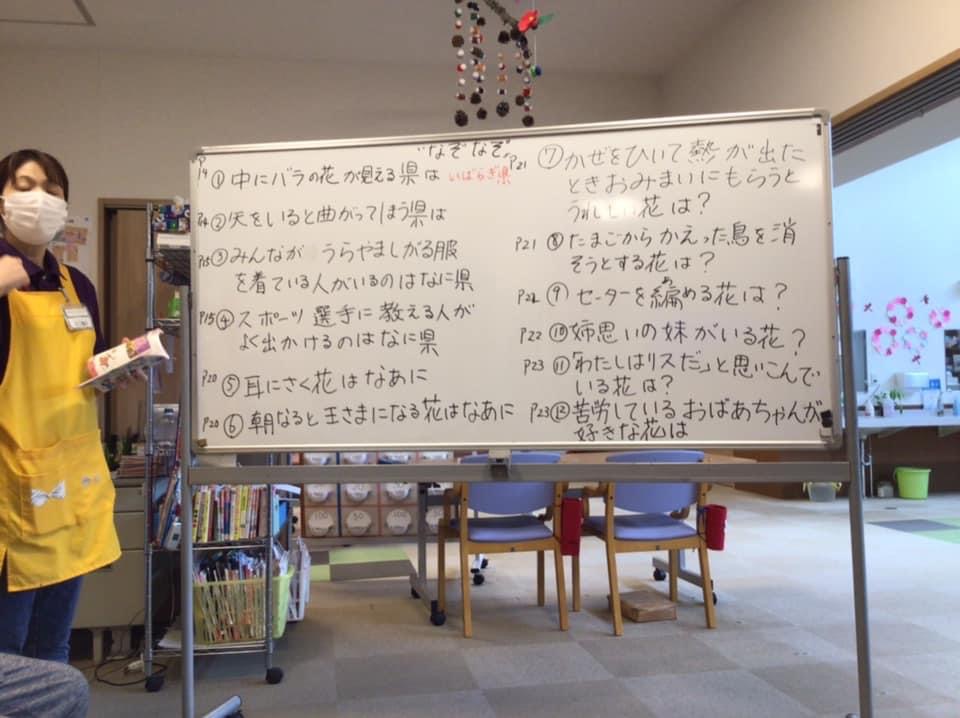 "なぞなぞ"
P4 ① 中にバラの花が見える県は いばらぎ県
P4 ② 矢をいると曲がってしまう県は
P15 ③ みんなが うらやましがる服
を着ている人がいるのはなに県
P15 ④ スポーツ選手に教える人が
よく出かけるのはなに県
P20 ⑤ 耳にさく花はなあに
P20 ⑥ 朝なると王さまになる花はなあに
P21 ⑦ かぜをひいて熱が出た
ときおみまいにもらうと
うれしい花は?
P21 ⑧ たまごからかえった鳥を消
そうとする花は?
P22 ⑨ セーターを編(あ)める花は?
P22 ⑩ 姉思いの妹がいる花?
P23 ⑪「わたしはリスだ」と思いこんで
いる花は?
P23 ⑫ 苦労しているおばあちゃんが
好きな花は
100
50